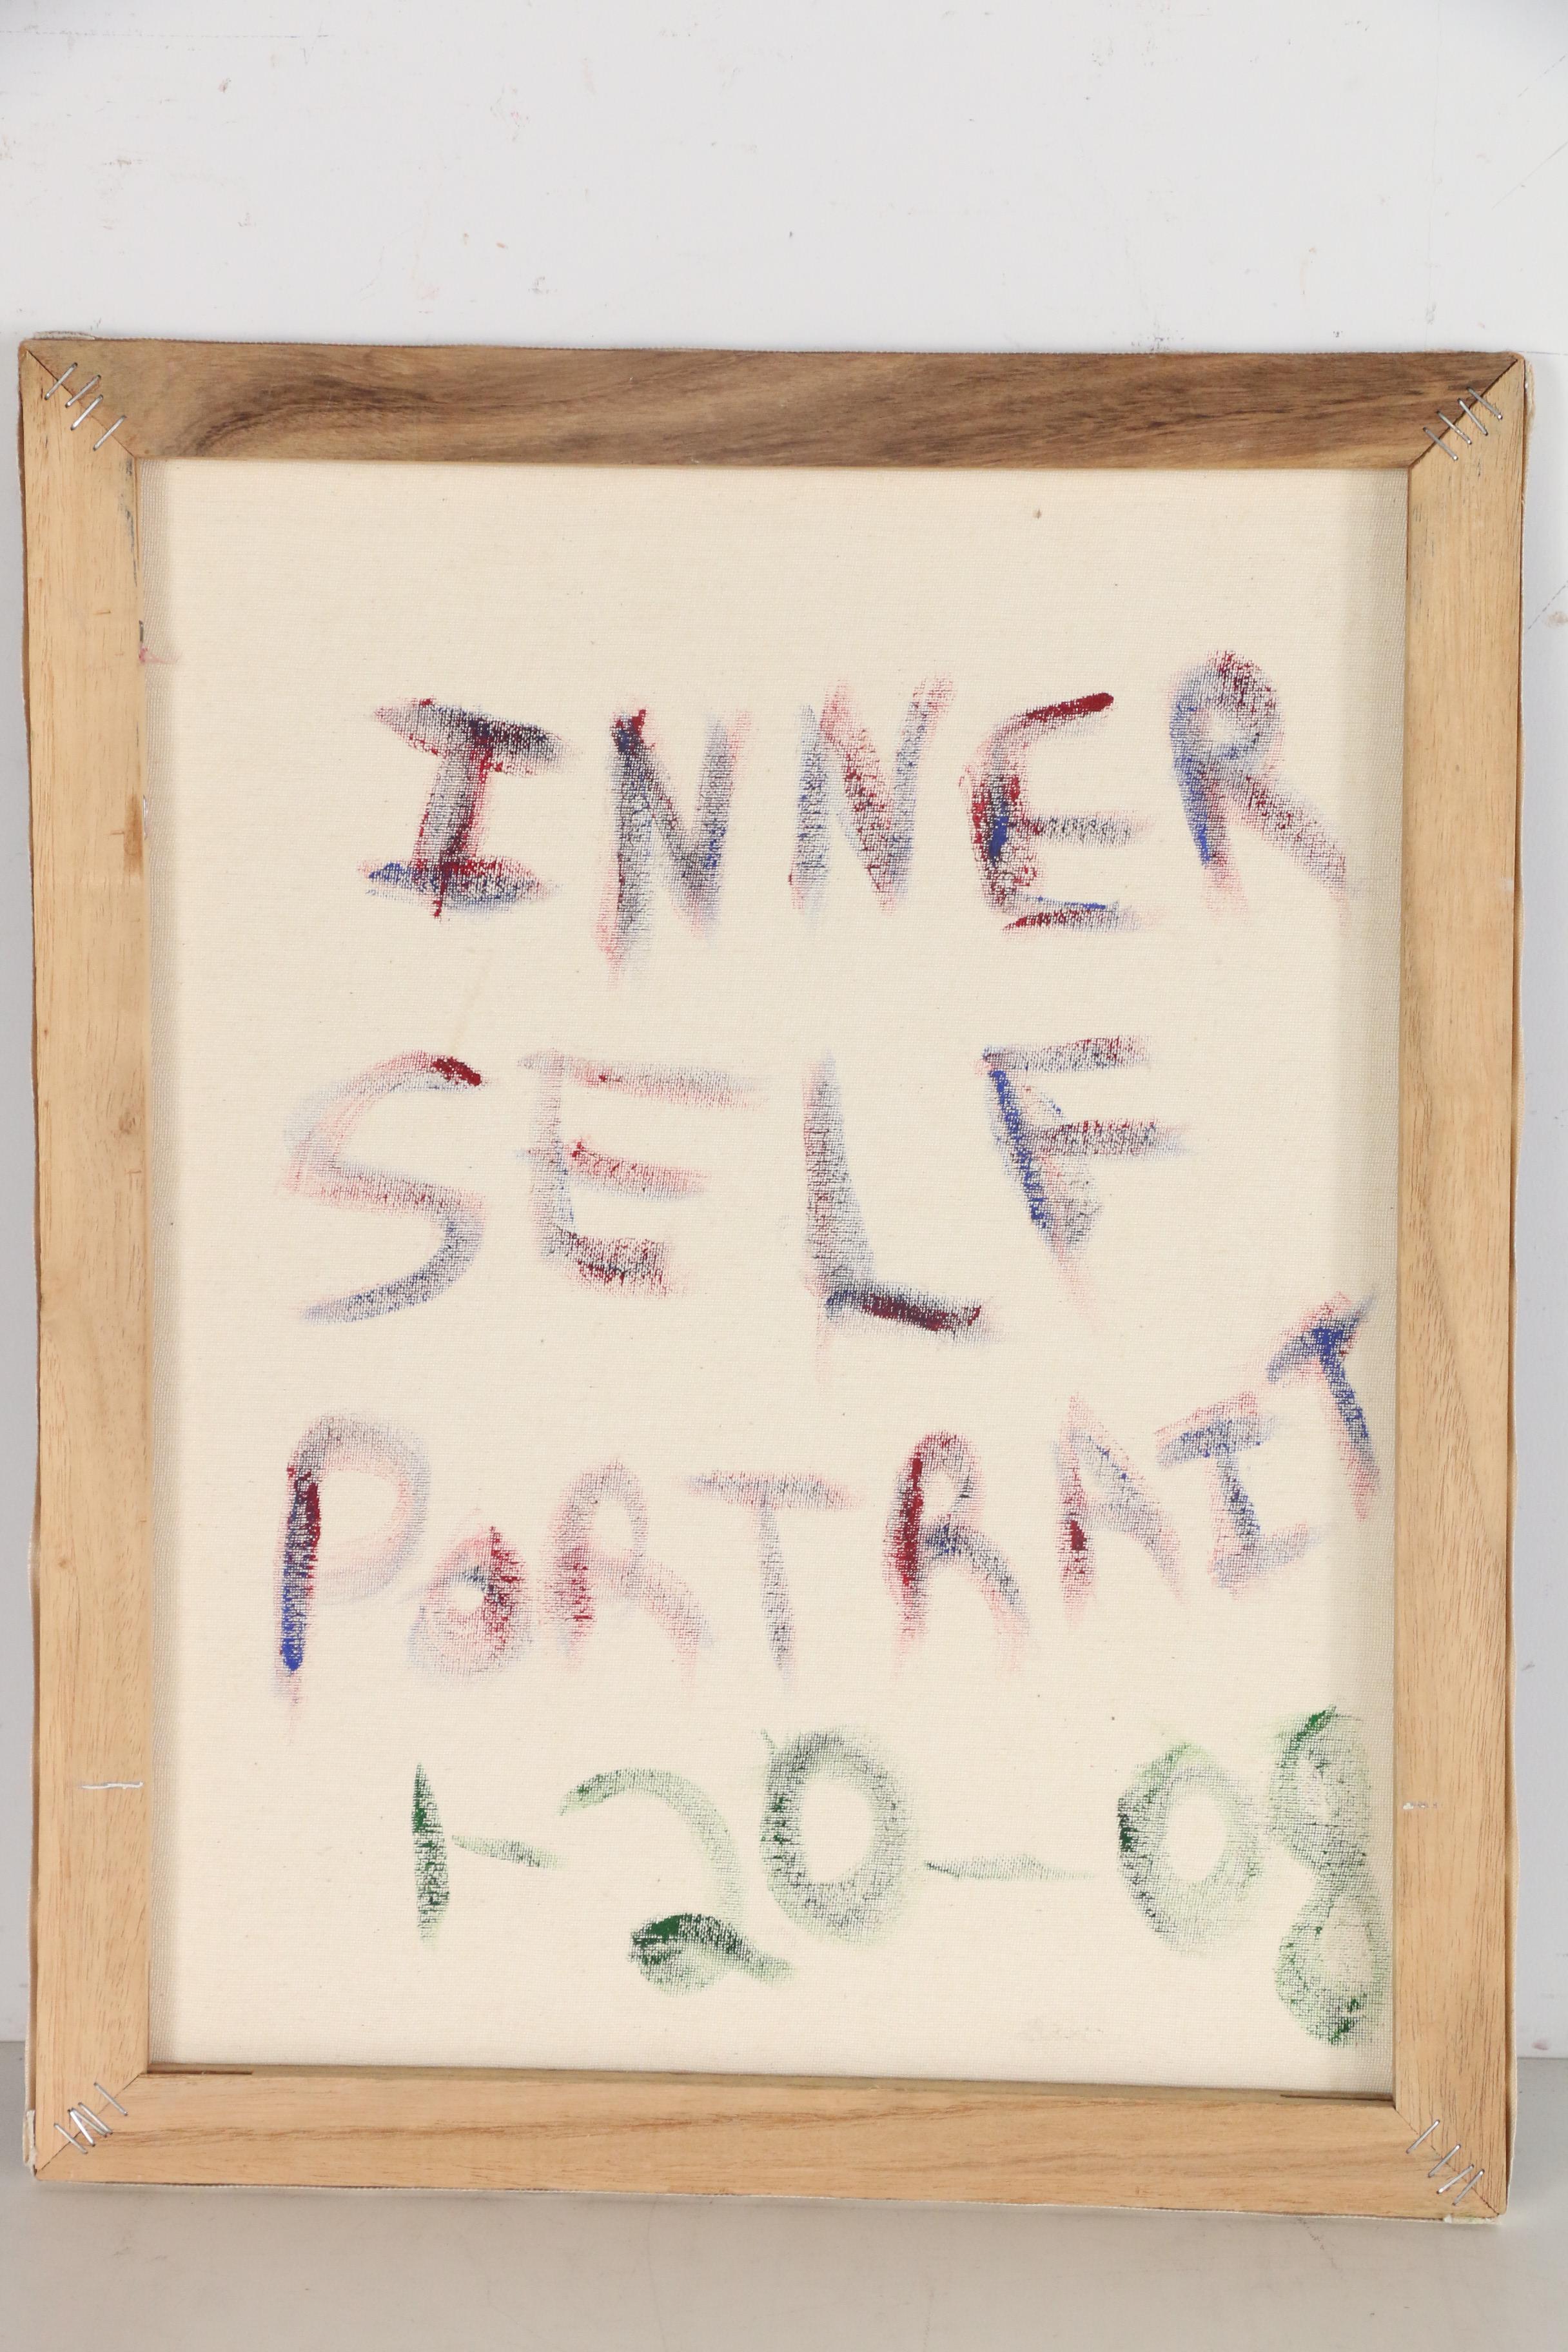 INNER
SELF
PORTRAIT
1-20-08